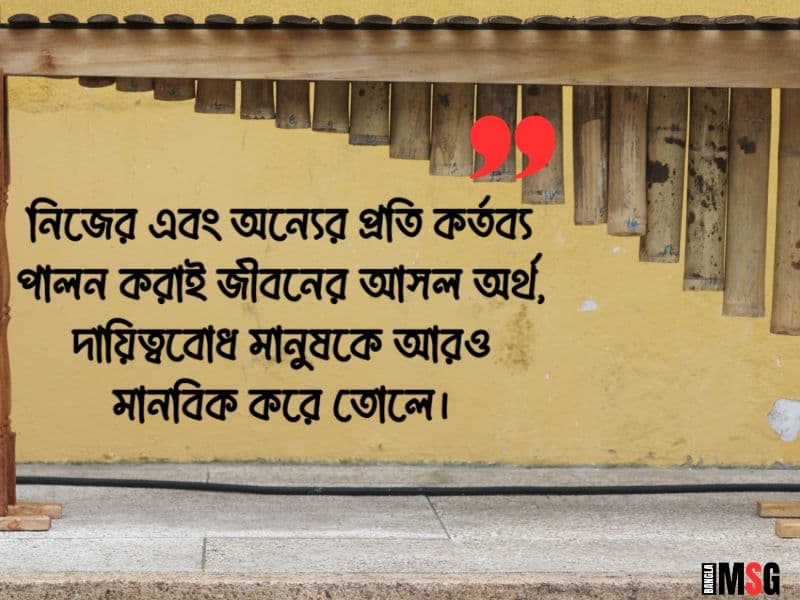 নিজের এবং অন্যের প্রতি কর্তব্য
পালন করাই জীবনের আসল অর্থ,
দায়িত্ববোধ মানুষকে আরও
মানবিক করে তোলে।
BANGLA MSG